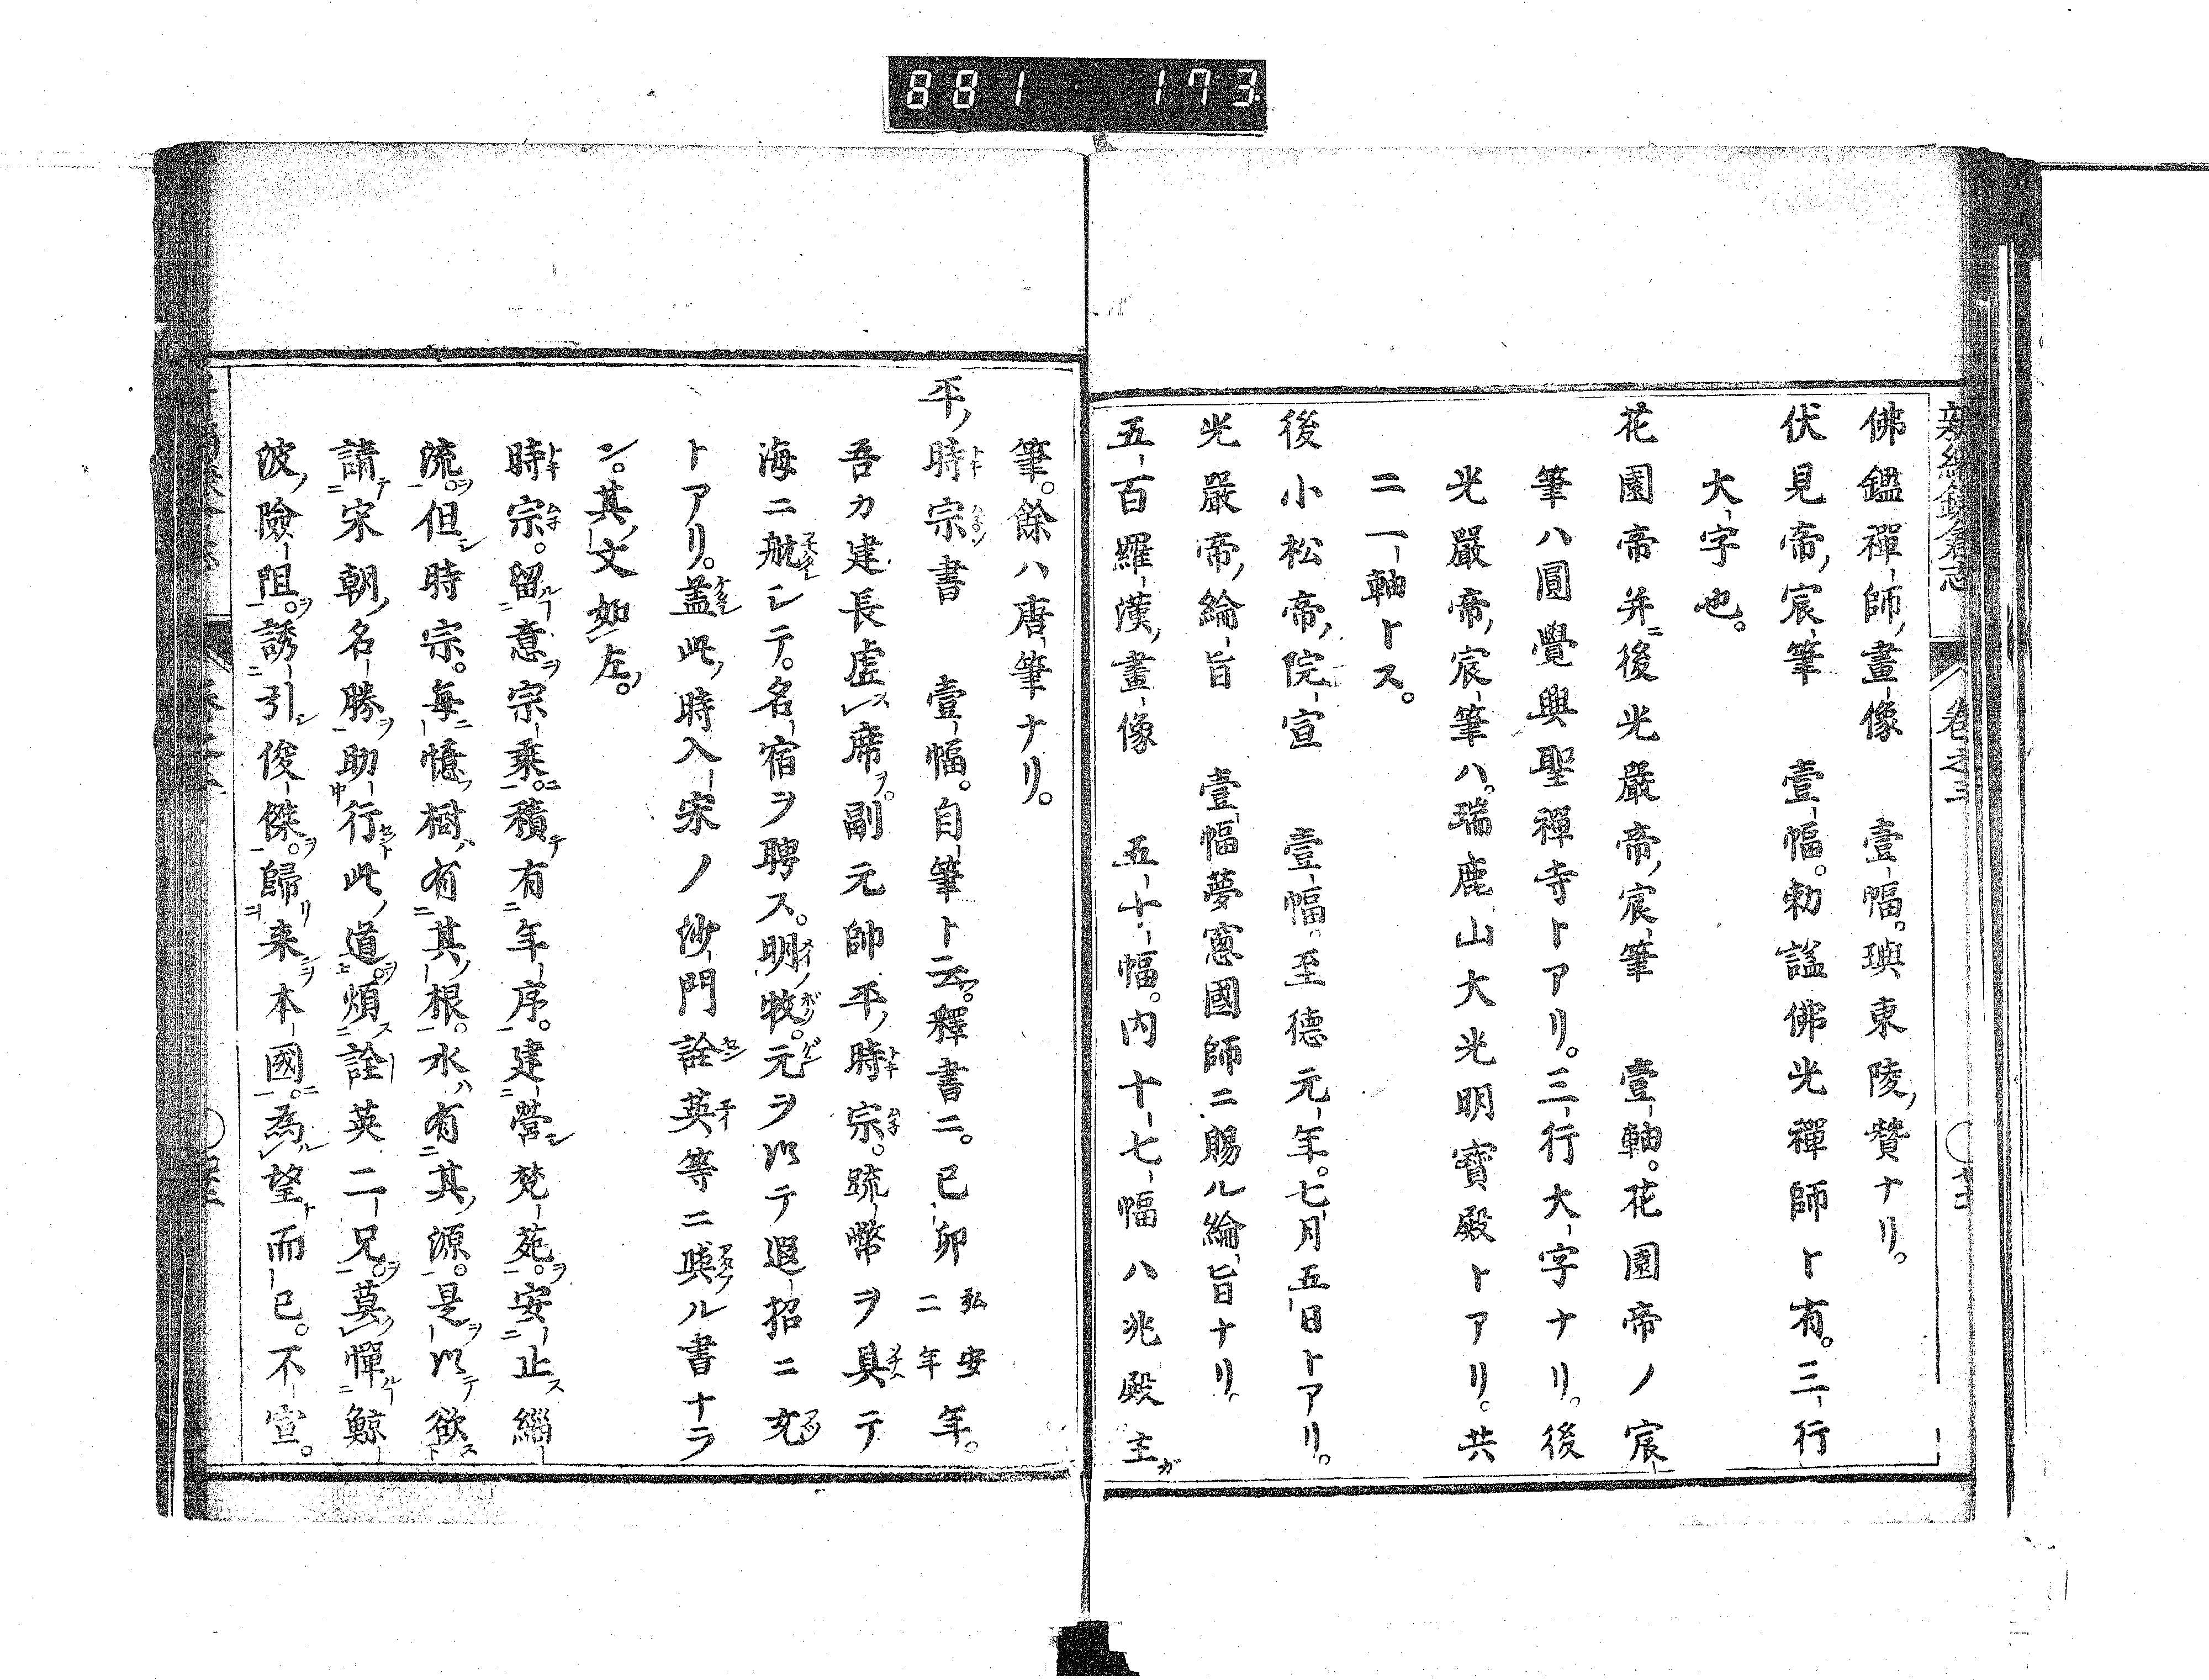 881 173
新編鎌倉志 卷之三
佛鑑禪師畫像 壹幅。璵東陵贊ナリ。
伏見帝宸筆 壹幅。勅謚佛光禪師ト有。三行
大字也。
花園帝并後光嚴帝宸筆 壹軸。花園帝ノ宸
筆ハ圓覺興聖禪寺トアリ。三行大字ナリ。後
光嚴帝宸筆ハ。瑞鹿山大光明寶殿トアリ。共
ニ一軸トス。
後小松帝院宣 壹幅。至德元年。七月五日トアリ。
光嚴帝綸旨 壹幅夢窻國師ニ賜ル綸旨ナリ。
五百羅漢畫像 五十幅。内十七幅ハ兆殿主ガ
筆。餘ハ唐筆ナリ。
平時宗書 壹幅。自筆ト云。釋書ニ。已卯弘安二年年。
吾カ建長虚席ヲ。副元帥平時宗。疏幣ヲ具テ
海ニ航シテ。名宿ヲ聘ス。明牧。元ヲ以テ遐招ニ充
トアリ。蓋此時入宋ノ沙門詮英等ニ與ル書ナラ
ン。其文如左。
時宗。留意宗乘。積有年序。建營梵苑。安止緇
流。但時宗。每憶樹有其根。水有其源。是以欲
請宋朝名勝助行此道。煩詮英二兄。莫憚鯨
波險阻。誘引俊傑。歸来本國。為望而已。不宣。